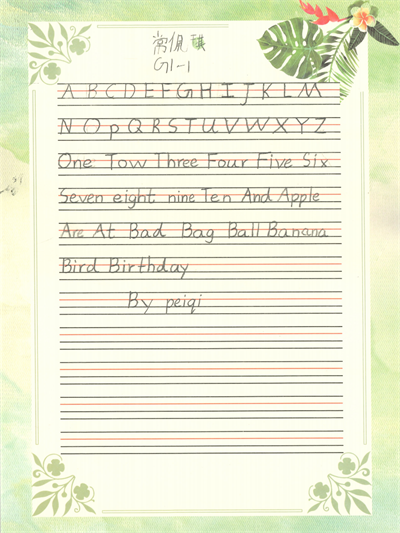 常佩琪
G1-1
A B C D E F G H I J K L M
N O p Q R S T U V W X Y Z
One Tow Three Four Five Six
Seven eight nine Ten And Apple
Are At Bad Bag Ball Banana
Bird Birthday
By peiqi